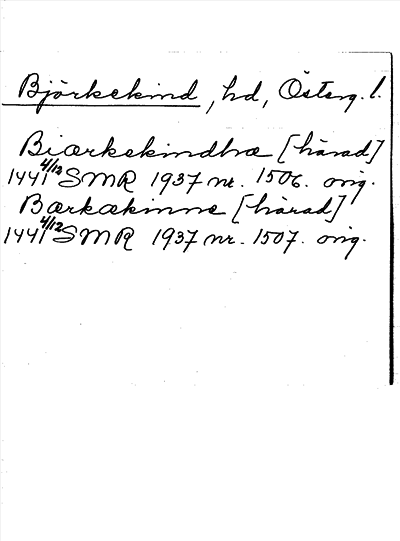 Björkekind, hd, Österg. l.
Biærkekindhræ [härad]
1441 4/12 SMR 1937 nr. 1506. orig.
Bærkækinne [härad]
1441 4/12 SMR 1937 nr. 1507. orig.